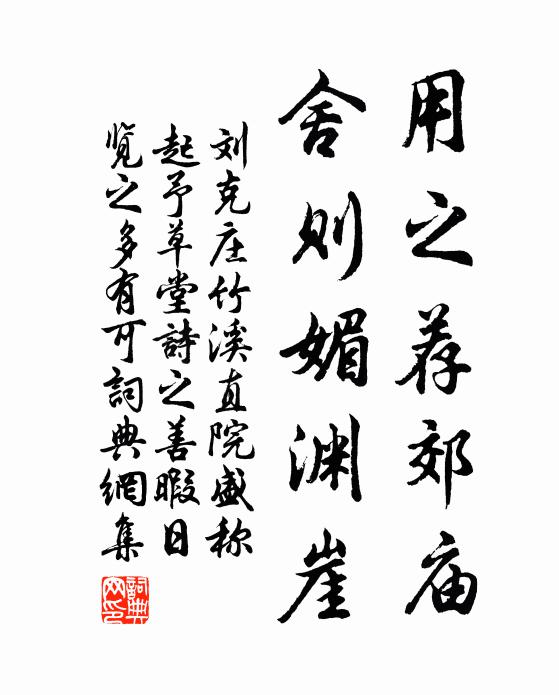 用之荐郊庙
舍则媚渊崖
刘克庄竹溪直院盛称
起予草堂詩之善暇日
览之多有可詞典網集
詞典網印